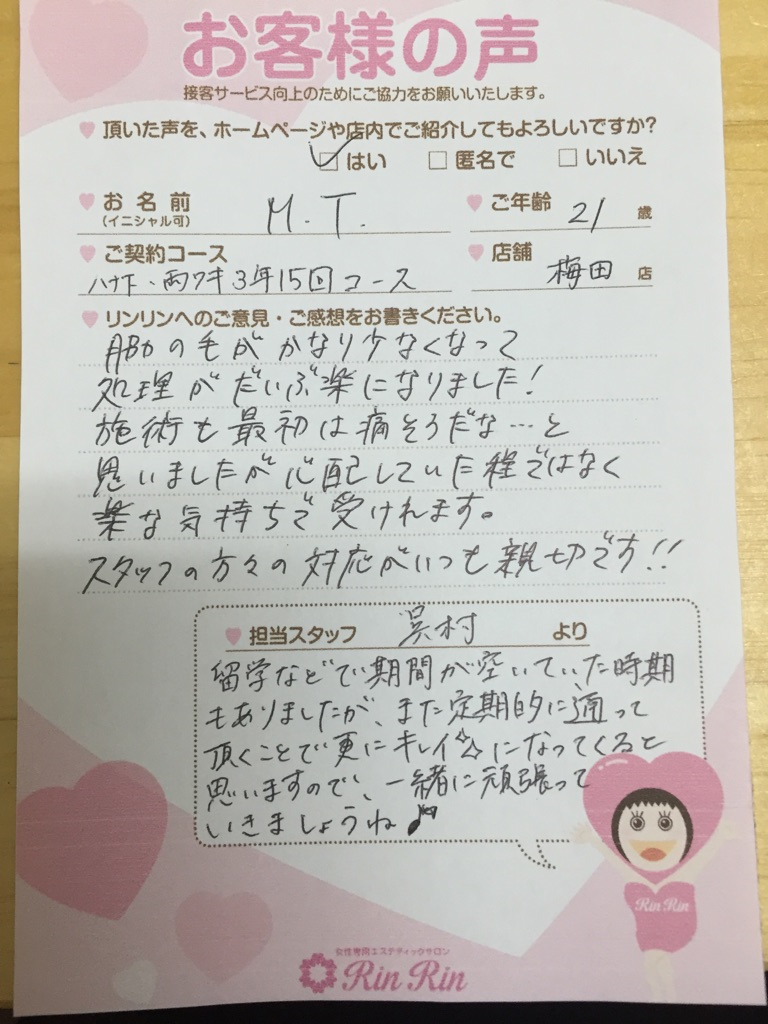 お客様の声
接客サービス向上のためにご協力をお願いいたします。
頂いた声を、ホームページや店内でご紹介してもよろしいですか?
☑はい □匿名で □いいえ
お名前 M.T. ご年齢 21 歳
(イニシャル可)
ご契約コース 店舗 梅田 店
ハナ下・両ワキ3年15回コース
リンリンへのご意見・ご感想をお書きください。
脇の毛がかなり少なくなって
処理がだいぶ楽になりました!
施術も最初は痛そうだな…と
思いましたが心配していた程ではなく
楽な気持ちで受けれます。
スタッフの方々の対応がいつも親切です!!
担当スタッフ 呉村 より
留学などで期間が空いていた時期
もありましたが、また定期的に通って
頂くことで更にキレイ☆になってくると
思いますので、一緒に頑張って
いきましょうね♪
Rin Rin
女性専用エステティックサロン
Rin Rin